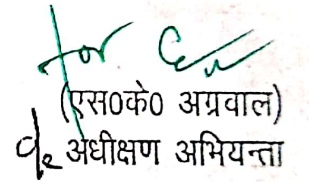 for
(एस०के० अग्रवाल)
अधीक्षण अभियन्ता